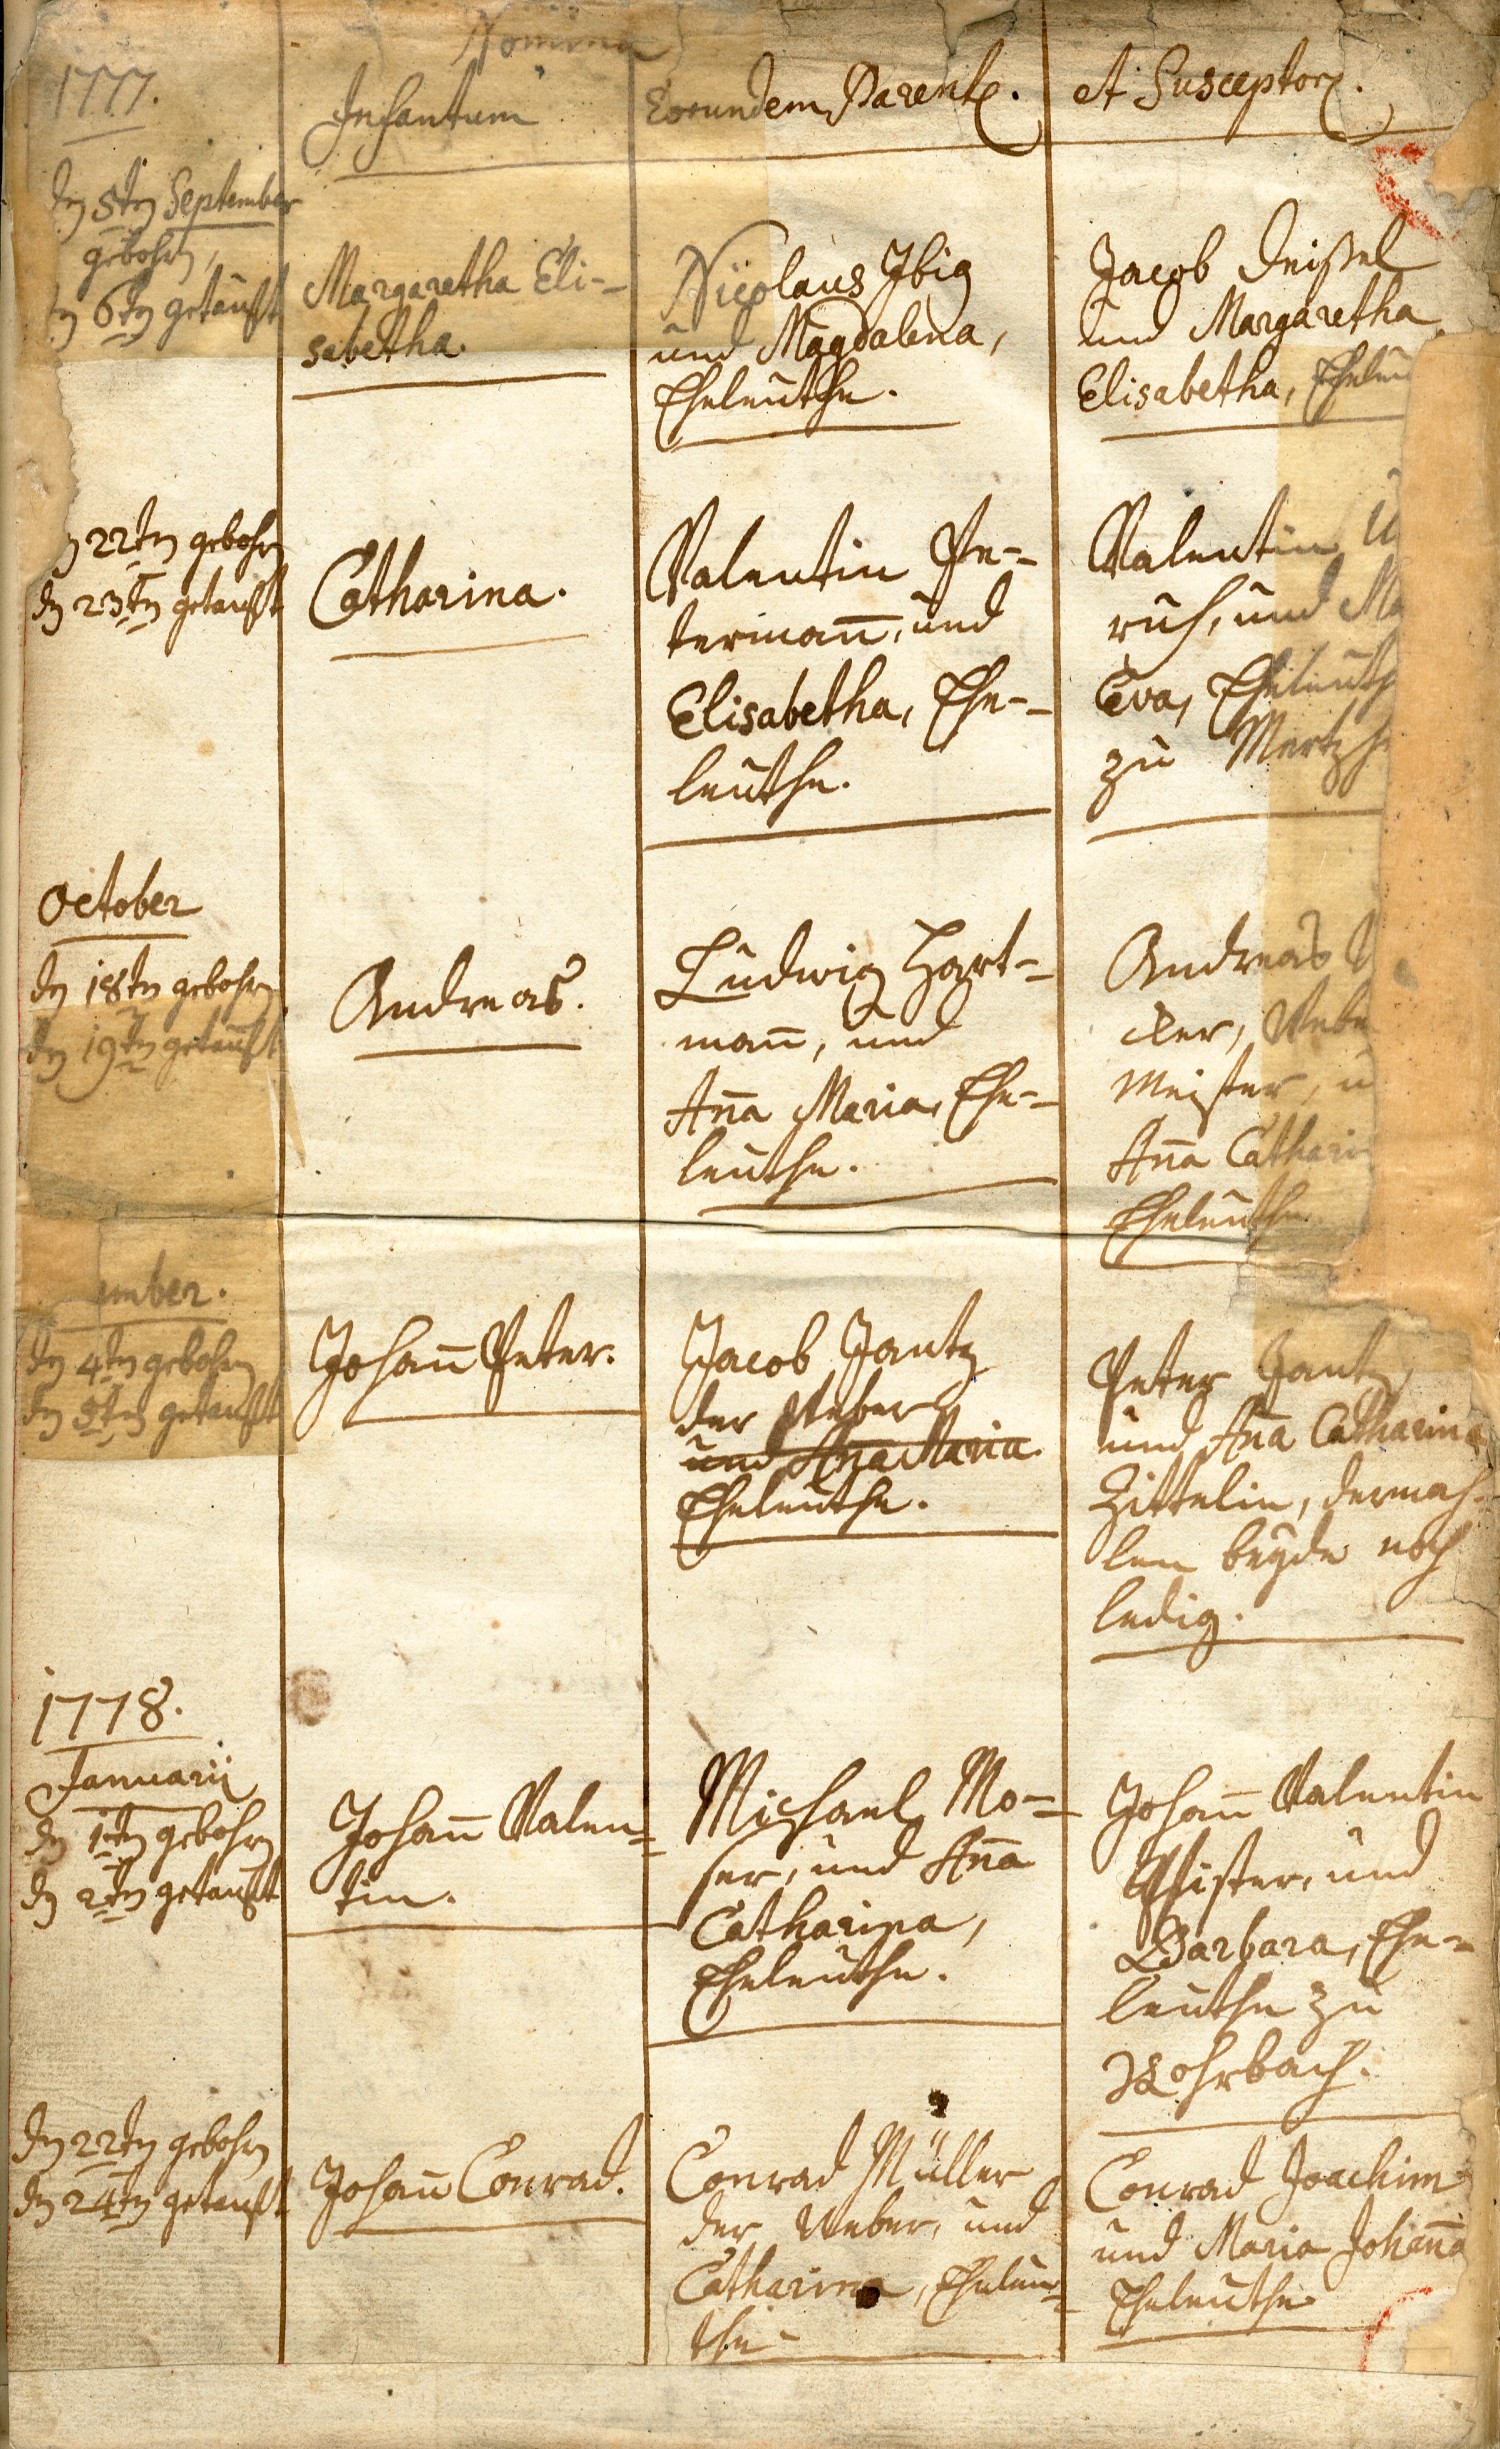 Nomina
1777.
Infantum
Eorundem Parent.
et Susceptor.
den 5ten September
gebohrn,
den 6ten getaufft
Margaretha Eli-
sabetha.
Nicolaus Ibig
und Magdalena,
Eheleuthe.
Jacob Deißel
und Margaretha
Elisabetha, Eheleu
22ten gebohrn
den 23ten getaufft
Catharina.
Valentin Pe-
termann, und
Elisabetha, Ehe-
leuthe.
Valentin
ruh, und Ma
Eva, Eheleuthe
zu Mertzh
October
den 18ten gebohrn
den 19ten getaufft
Andreas.
Ludwig Hart-
mann, und
Anna Maria, Ehe-
leuthe.
Andreas
cker, Webe
Meister, u
Anna Cathari
Eheleuthe
mber.
den 4ten gebohrn
den getaufft
Johann Peter.
Jacob Jantz
der Weber
und Anna Maria
Eheleuthe.
Peter Jantz,
und Anna Catharina
Zittelin, dermah-
len beyde noch
ledig.
1778.
Januarii
den 1ten gebohrn
den 2ten getaufft
Johann Valen-
tin.
Michael Mo-
ser, und Anna
Catharina,
Eheleuthe.
Johann Valentin
Pfister, und
Barbara, Ehe-
leuthe zu
Rohrbach.
den 22ten gebohrn
den 24ten getaufft
Johann Conrad.
Conrad Müller
der Weber, und
Catharina, Eheleu-
the
Conrad Joachim
und Maria Johanna
Eheleuthe